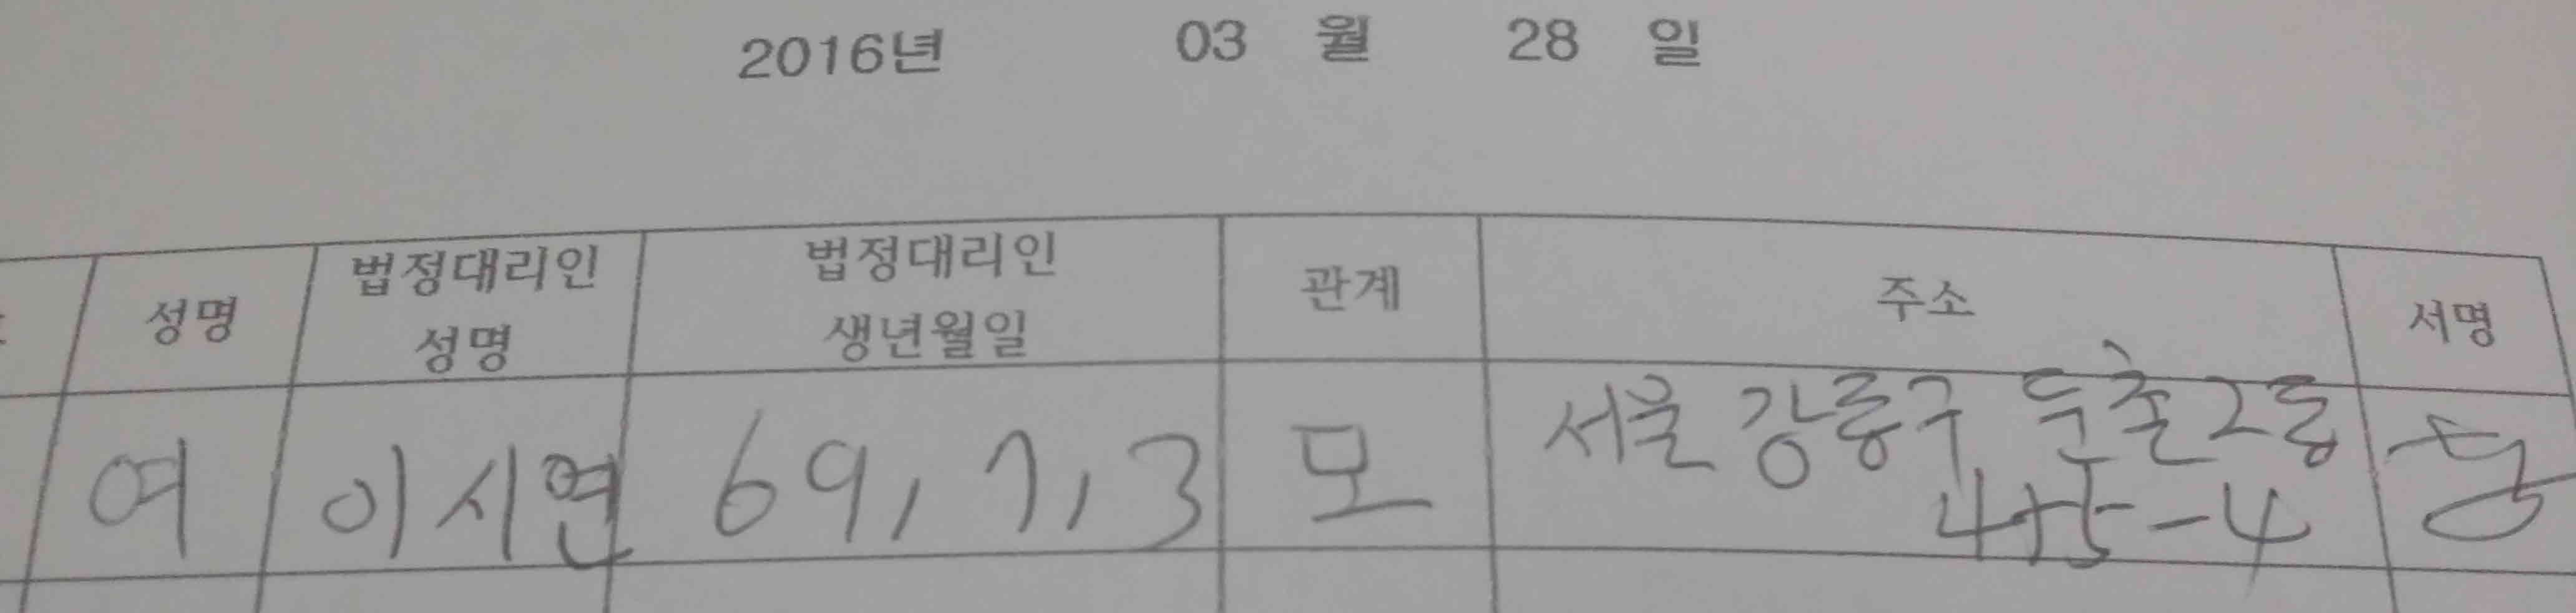 2016년 03 월 28 일
성명 법정대리인 성명 법정대리인 생년월일 관계 주소 서명
여 이시연 69, 7, 3 모 서울 강동구 둔촌2동
-4